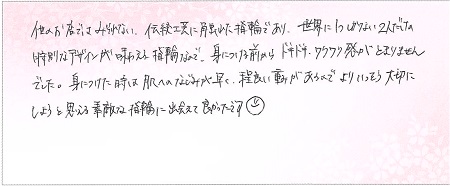 他のお店では見られない、伝統工芸に育まれた指輪であり、世界に1つしかない2人だけの
特別なデザインが味わえる指輪なので、身につける前からドキドキ、ワクワク感がとまりません
でした。身につけた時は肌へのなじみが早く、程良い重みがあるのでよりいっそう大切に
しようと思える素敵な指輪に出会えて良かったです